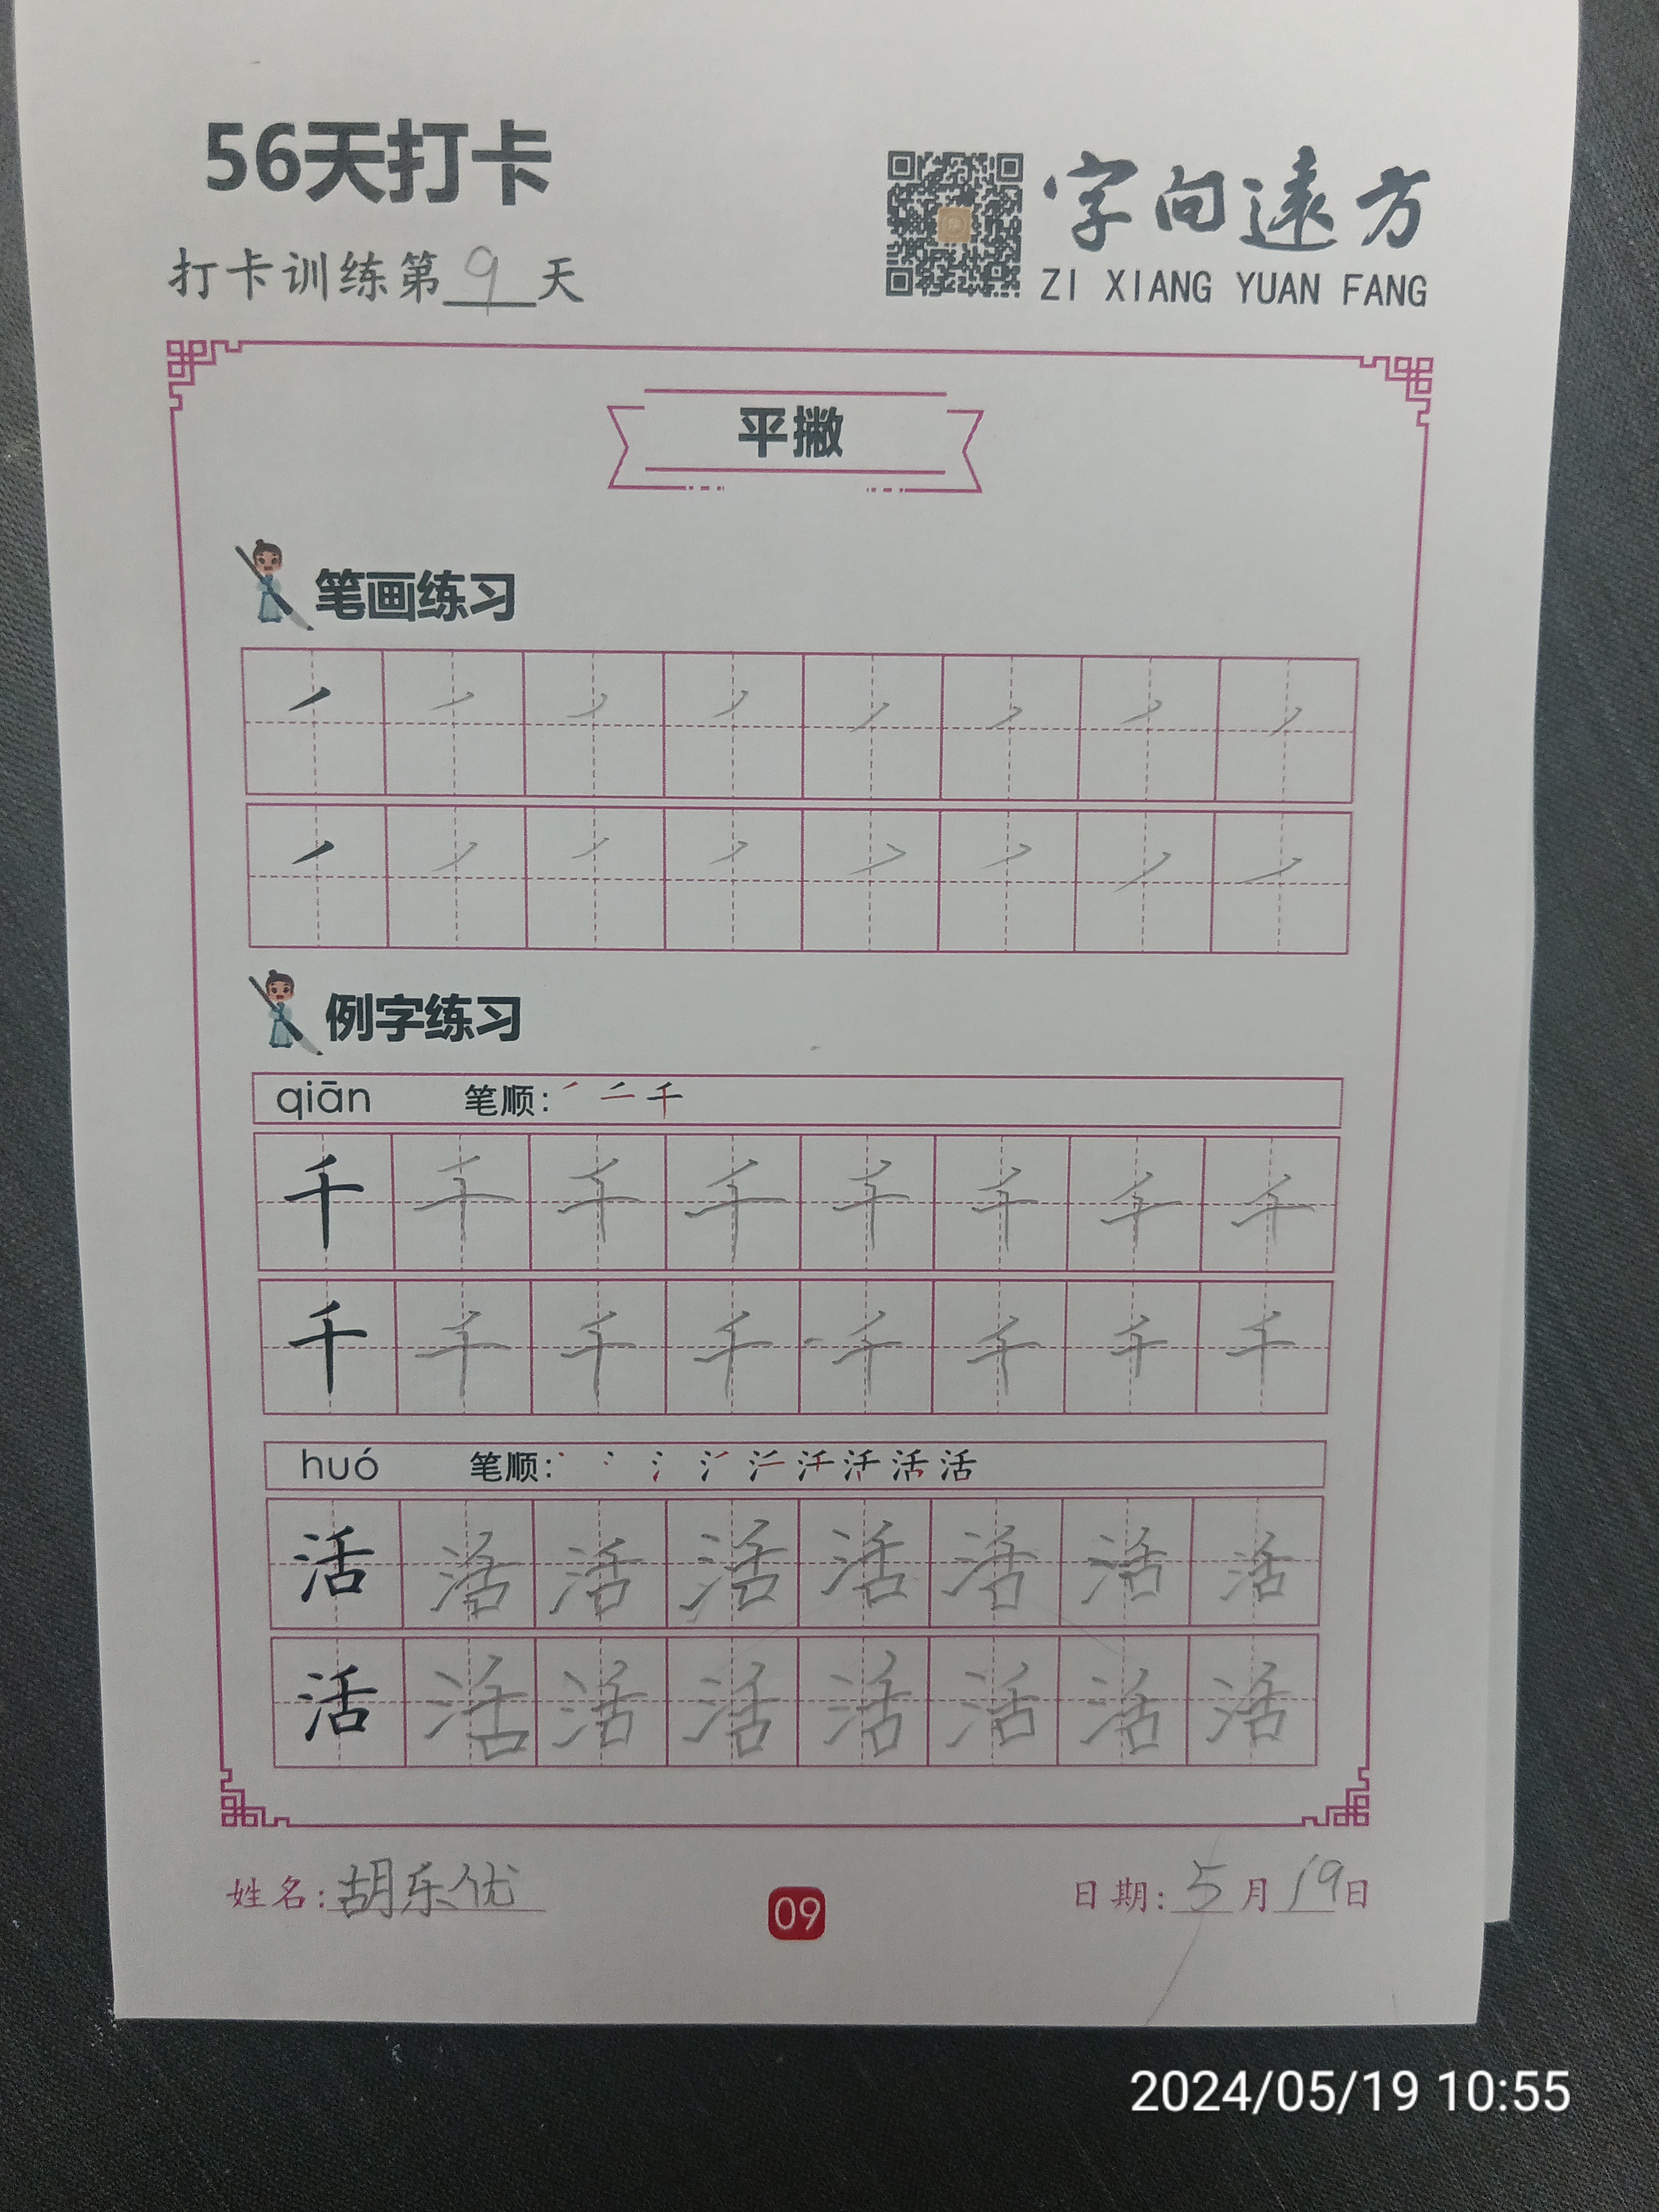 56天打卡
字向遠方
ZI XIANG YUAN FANG
打卡训练第9天
平撇
笔画练习
例字练习
qiān 笔顺: 丿 二 千
千 千 千 千 千 千 千 千
千 千 千 千 千 千 千 千
huó 笔顺: 活
活 活 活 活 活 活 活 活
活 活 活 活 活 活 活 活
姓名: 胡乐优
09
日期: 5月19日
2024/05/19 10:55